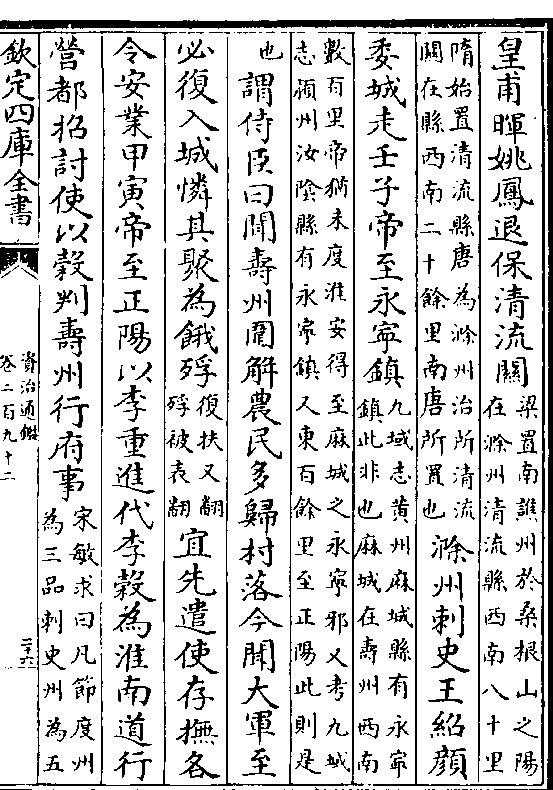 皇甫暉姚鳳退保清流關梁置南譙州於桑根山之陽在滁州清流縣西南八十里
隋始置清流縣唐為滁州治所清流關在縣西南二十餘里南唐所置也滁州刺史王紹顔
委城走壬子帝至永寧鎮九域志黄州麻城縣有永寧鎮此非也麻城在壽州西南
數百里帝猶未度淮安得至麻城之永寧邪又考九域志潁州汝隂縣有永寧鎮又東百餘里至正陽此則是
也謂侍臣曰聞壽州圍解農民多歸村落今聞大軍至
必復入城憐其聚為餓殍復扶又翻殍被表翻宜先遣使存撫各
令安業甲寅帝至正陽以李重進代李榖為淮南道行
營都招討使以榖判壽州行府事宋敏求曰凡節度州為三品刺史州為五
欽定四庫全書
資治通鑑
卷二百九十二
二十六